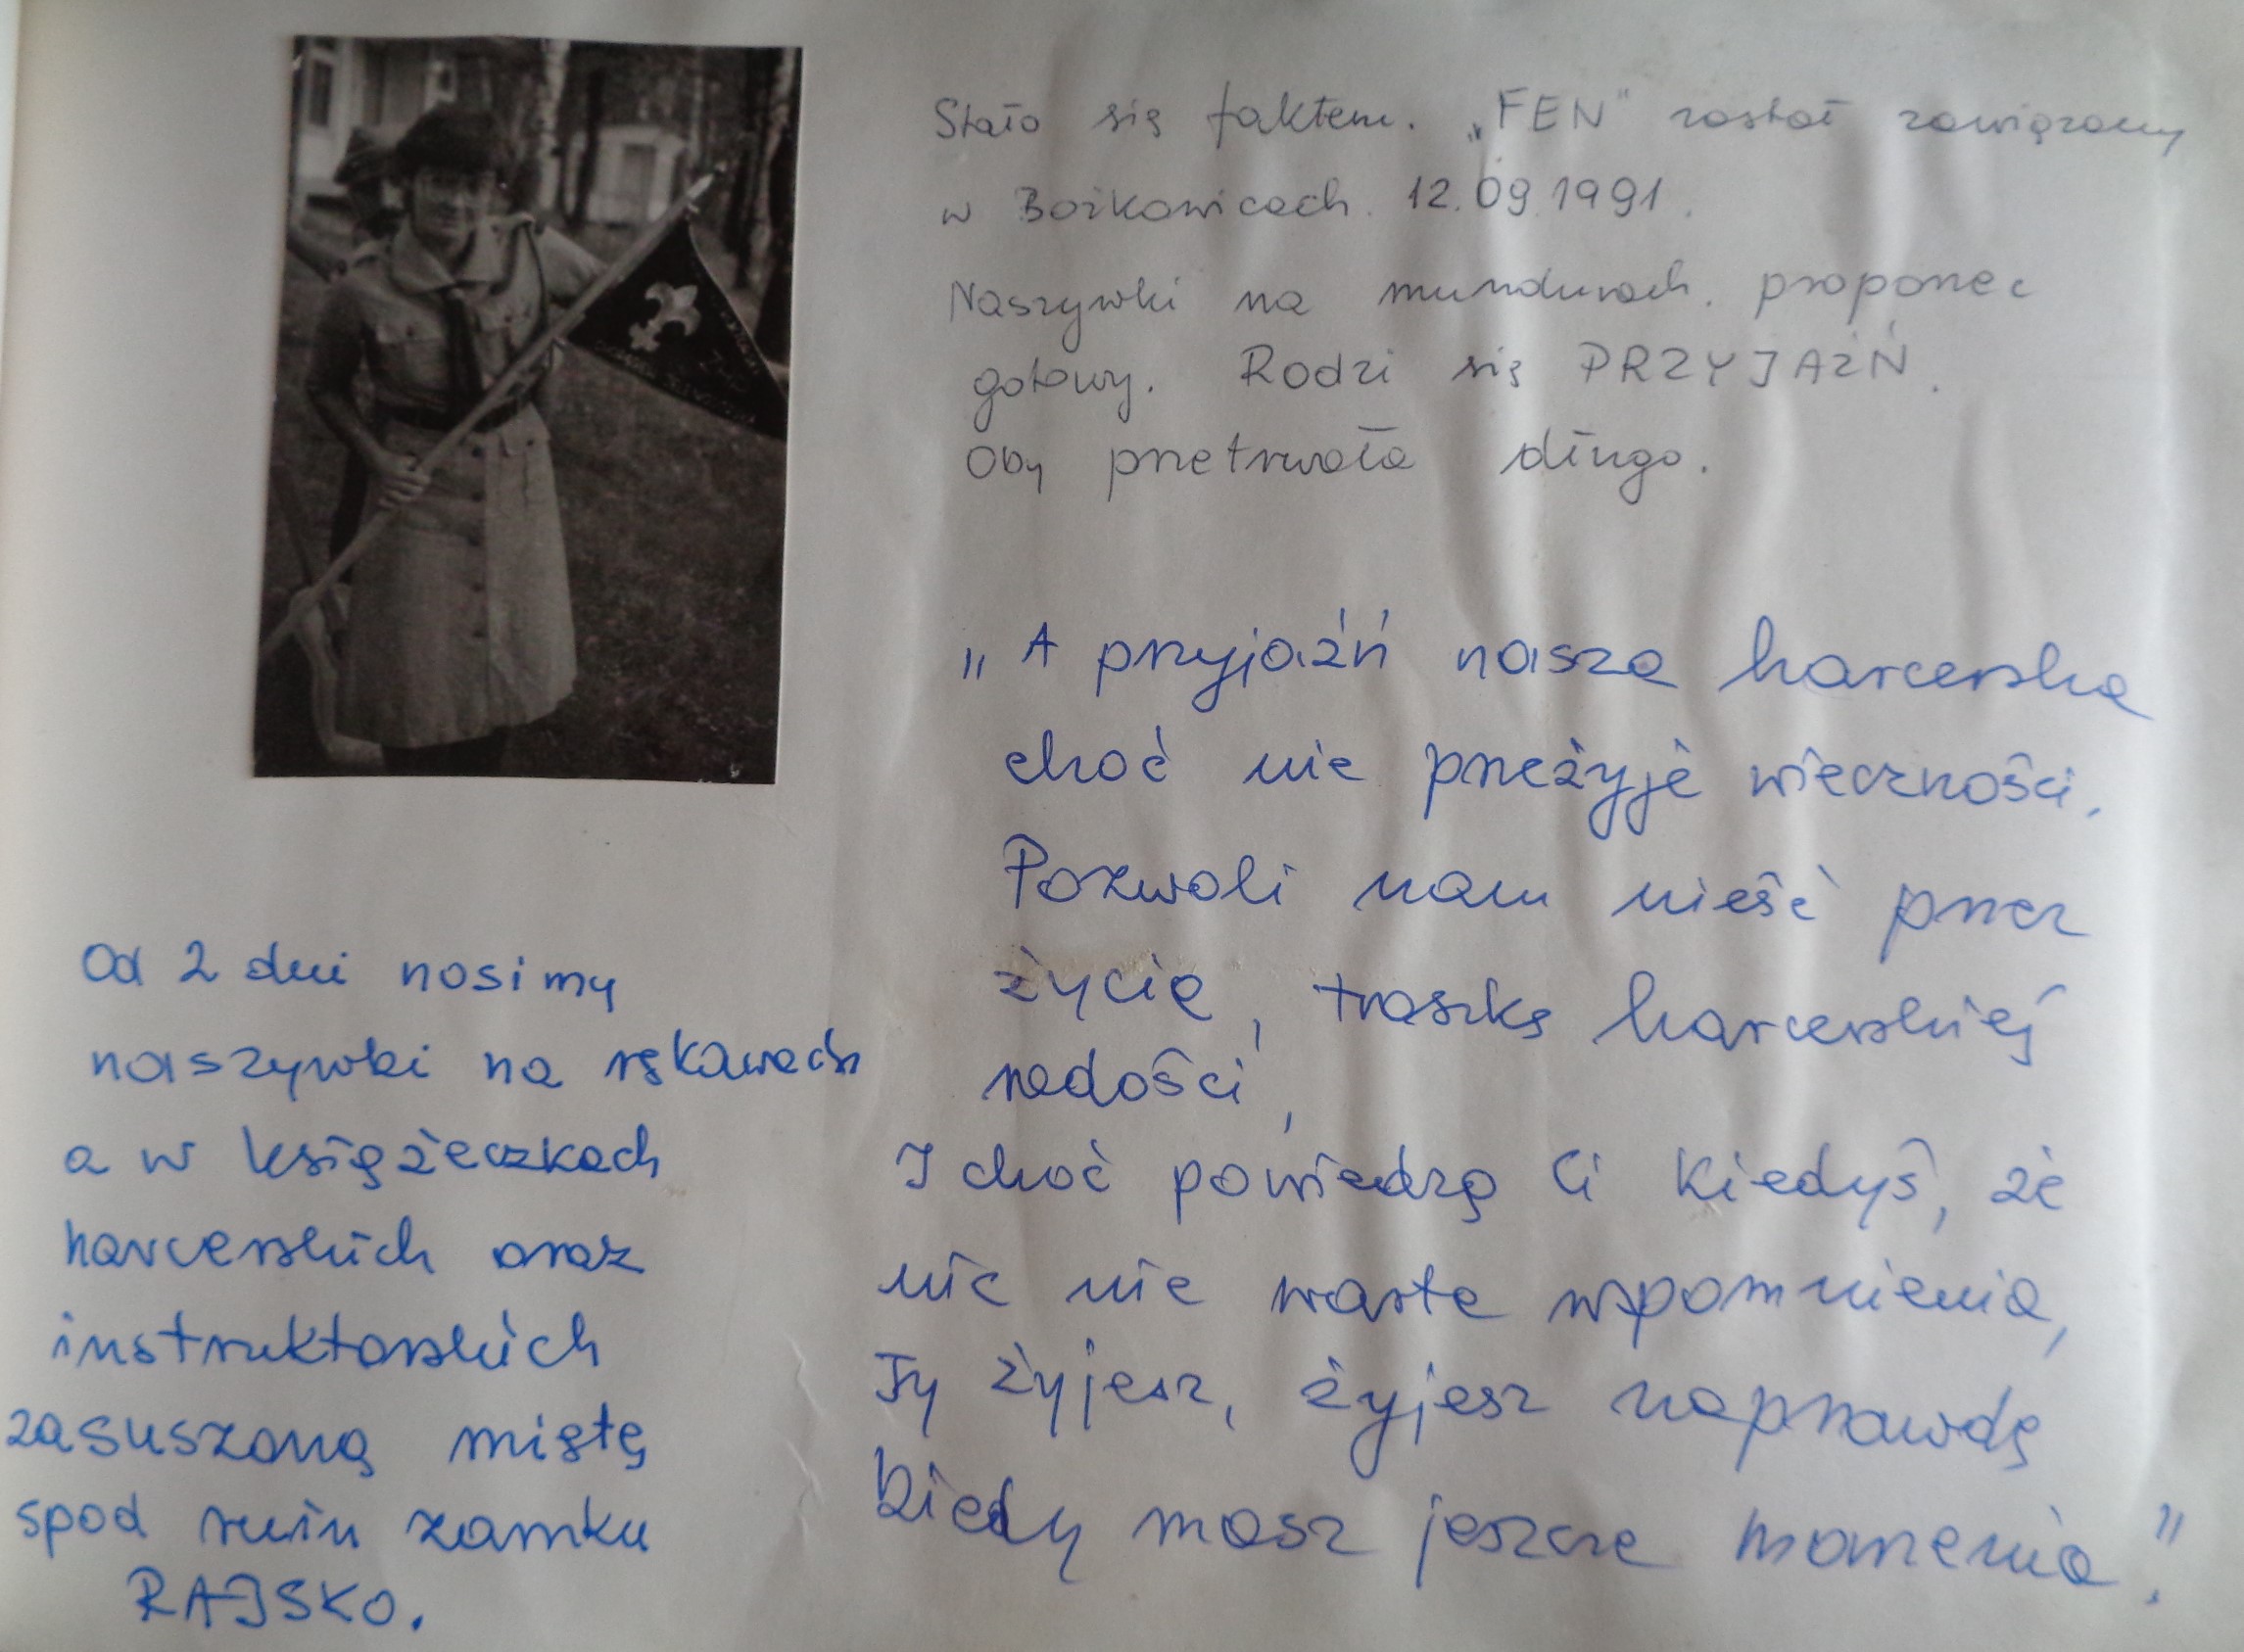 Stało się faktem. „FEN" został zawiązany
w Bożkowicach. 12.09.1991.
Naszywki na mundurach. proporzec
gotowy. Rodzi się PRZYJAŹŃ.
Oby przetrwała długo.
„A przyjaźń nasza harcerska
choć nie przeżyje wieczności.
Pozwoli nam nieść przez
życie, troszkę harcerskiej
radości,
I choć powiedzą Ci kiedyś, że
nic nie warte wspomnienia,
Ty żyjesz, żyjesz naprawdę
kiedy masz jeszcze marzenia."
Od 2 dni nosimy
naszywki na rękawach
a w książeczkach
harcerskich oraz
instruktorskich
zasuszoną miętę
spod ruin zamku
RAJSKO.